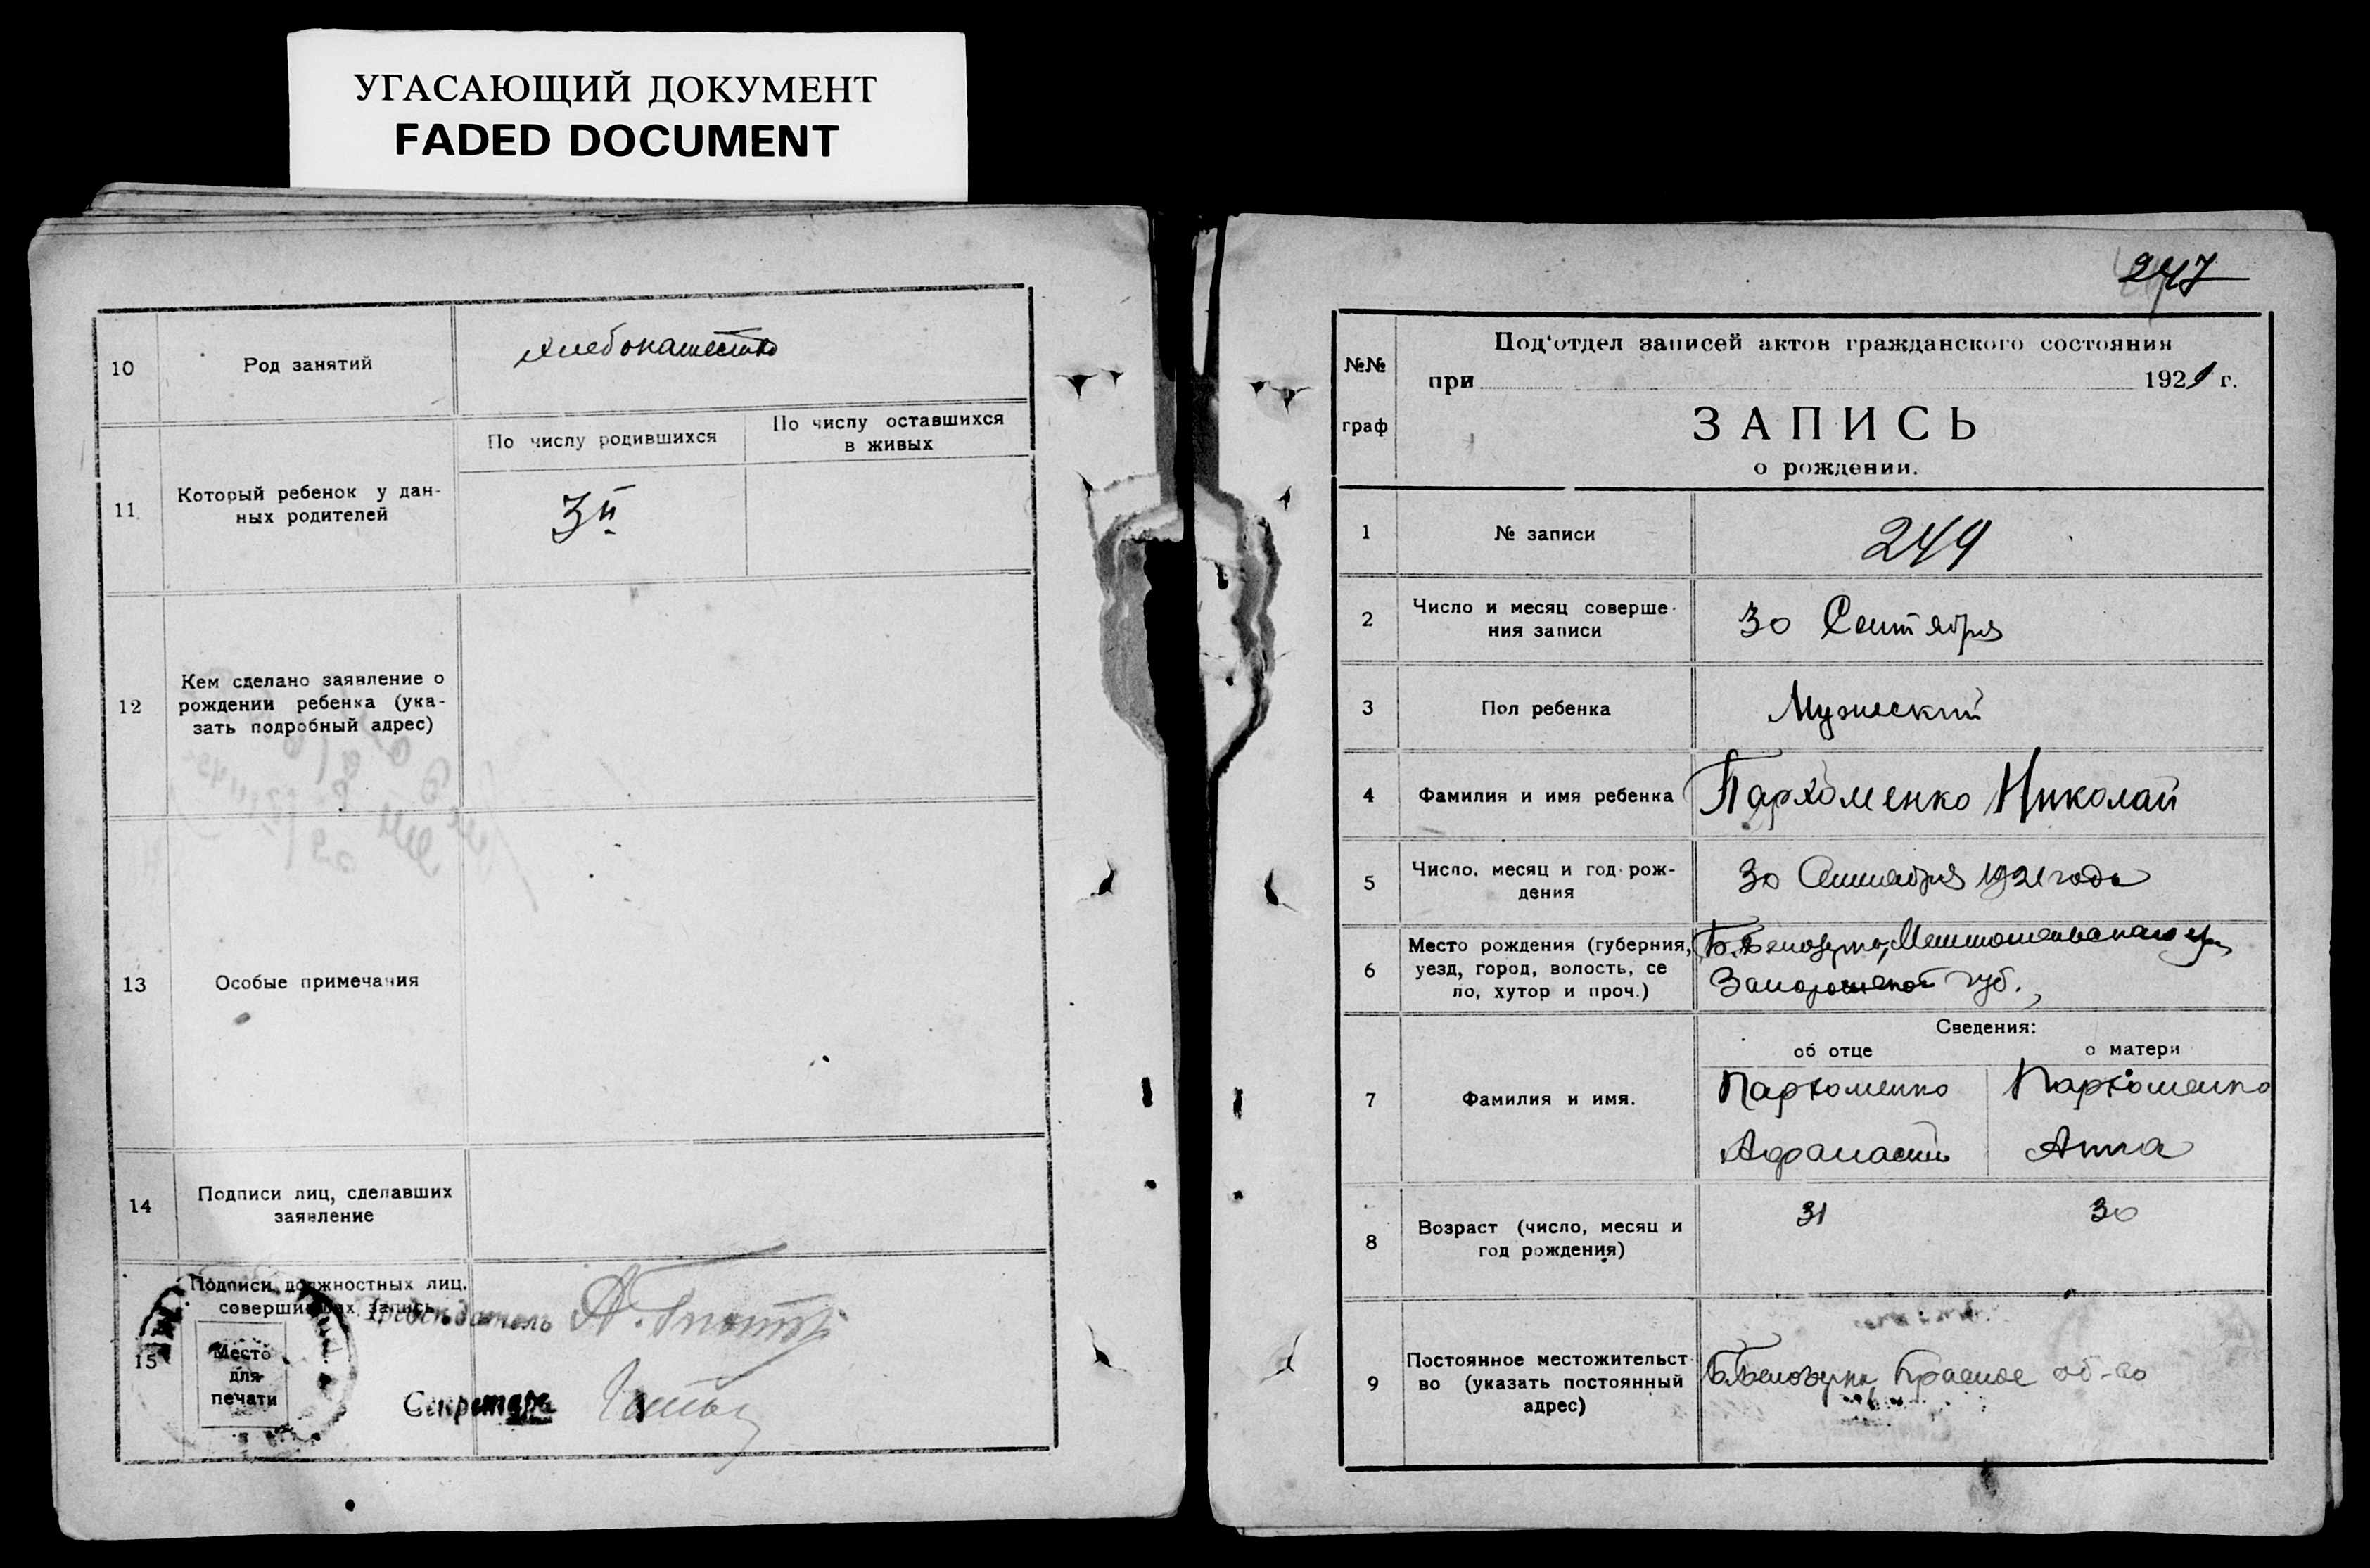 УГАСАЮЩИЙ ДОКУМЕНТ
FADED DOCUMENT
10
Род занятий
хлебопашество
11
Который ребенок у дан-
ных родителей
По числу родившихся
3й
По числу оставшихся
в живых
12
Кем сделано заявление о
рождении ребенка (ука-
зать подробный адрес)
13
Особые примечания
14
Подписи лиц, сделавших
заявление
15
Подписи должностных лиц,
совершивших запись
Место
для
печати
Председатель
Секретарь
247
№№
граф
Под'отдел записей актов гражданского состояния
при 1921 г.
ЗАПИСЬ
о рождении.
1
№ записи
249
2
Число и месяц соверше-
ния записи
30 Сентября
3
Пол ребенка
Мужеский
4
Фамилия и имя ребенка
Пархоменко Николай
5
Число, месяц и год рож-
дения
30 Сентября 1921 года
6
Место рождения (губерния,
уезд, город, волость, се
ло, хутор и проч.)
Б. Белозерка, Мелитопольского у.
Запорожской губ.
Сведения:
об отце
о матери
7
Фамилия и имя.
Пархоменко
Афанасий
Пархоменко
Анна
8
Возраст (число, месяц и
год рождения)
31
30
9
Постоянное местожительст-
во (указать постоянный
адрес)
Б. Белозерка Красное об-во